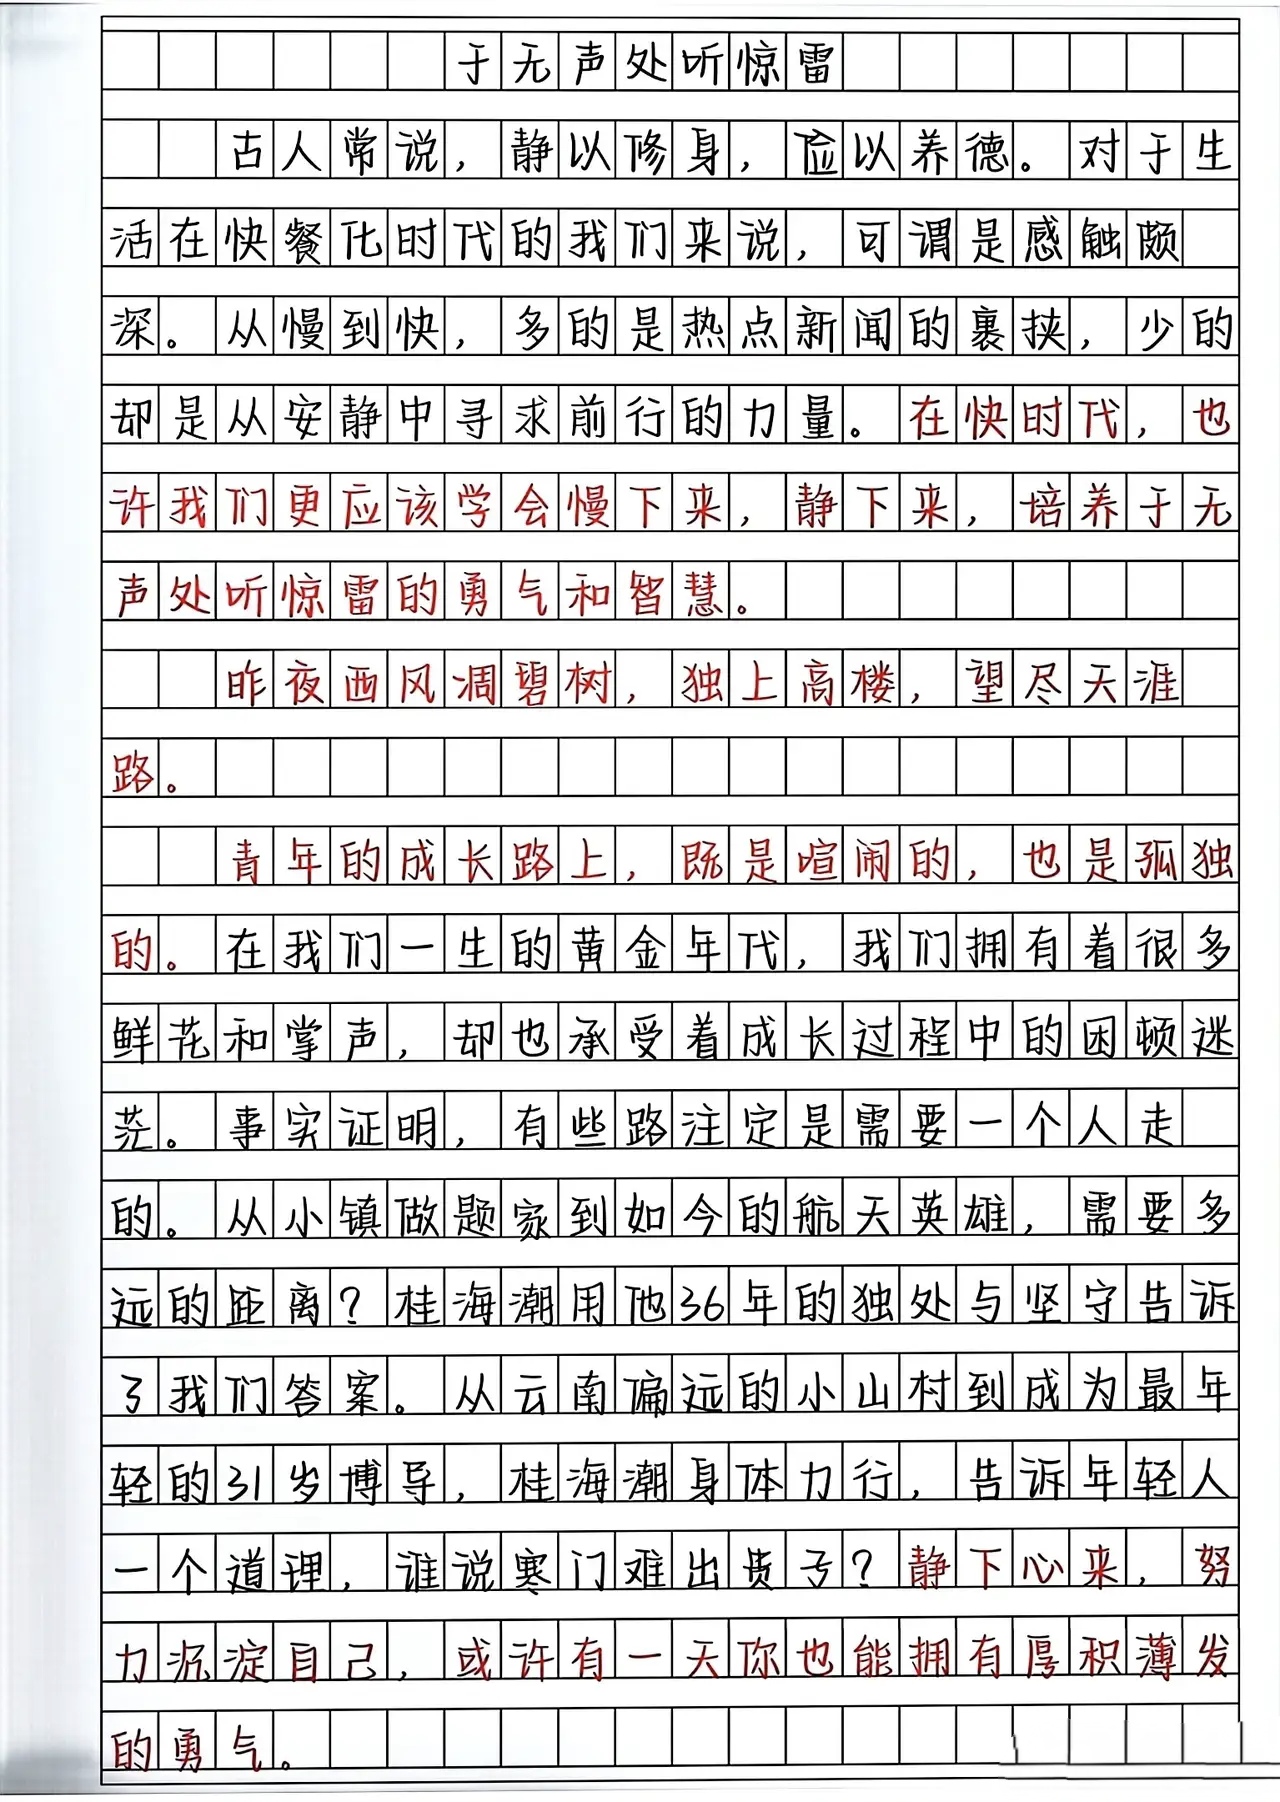 于无声处听惊雷
古人常说，静以修身，俭以养德。对于生
活在快餐化时代的我们来说，可谓是感触颇
深。从慢到快，多的是热点新闻的裹挟，少的
却是从安静中寻求前行的力量。在快时代，也
许我们更应该学会慢下来，静下来，培养于无
声处听惊雷的勇气和智慧。
昨夜西风凋碧树，独上高楼，望尽天涯
路。
青年的成长路上，既是喧闹的，也是孤独
的。在我们一生的黄金年代，我们拥有着很多
鲜花和掌声，却也承受着成长过程中的困顿迷
茫。事实证明，有些路注定是需要一个人走
的。从小镇做题家到如今的航天英雄，需要多
远的距离？桂海潮用他36年的独处与坚守告诉
了我们答案。从云南偏远的小山村到成为最年
轻的31岁博导，桂海潮身体力行，告诉年轻人
一个道理，谁说寒门难出贵子？静下心来，努
力沉淀自己，或许有一天你也能拥有厚积薄发
的勇气。